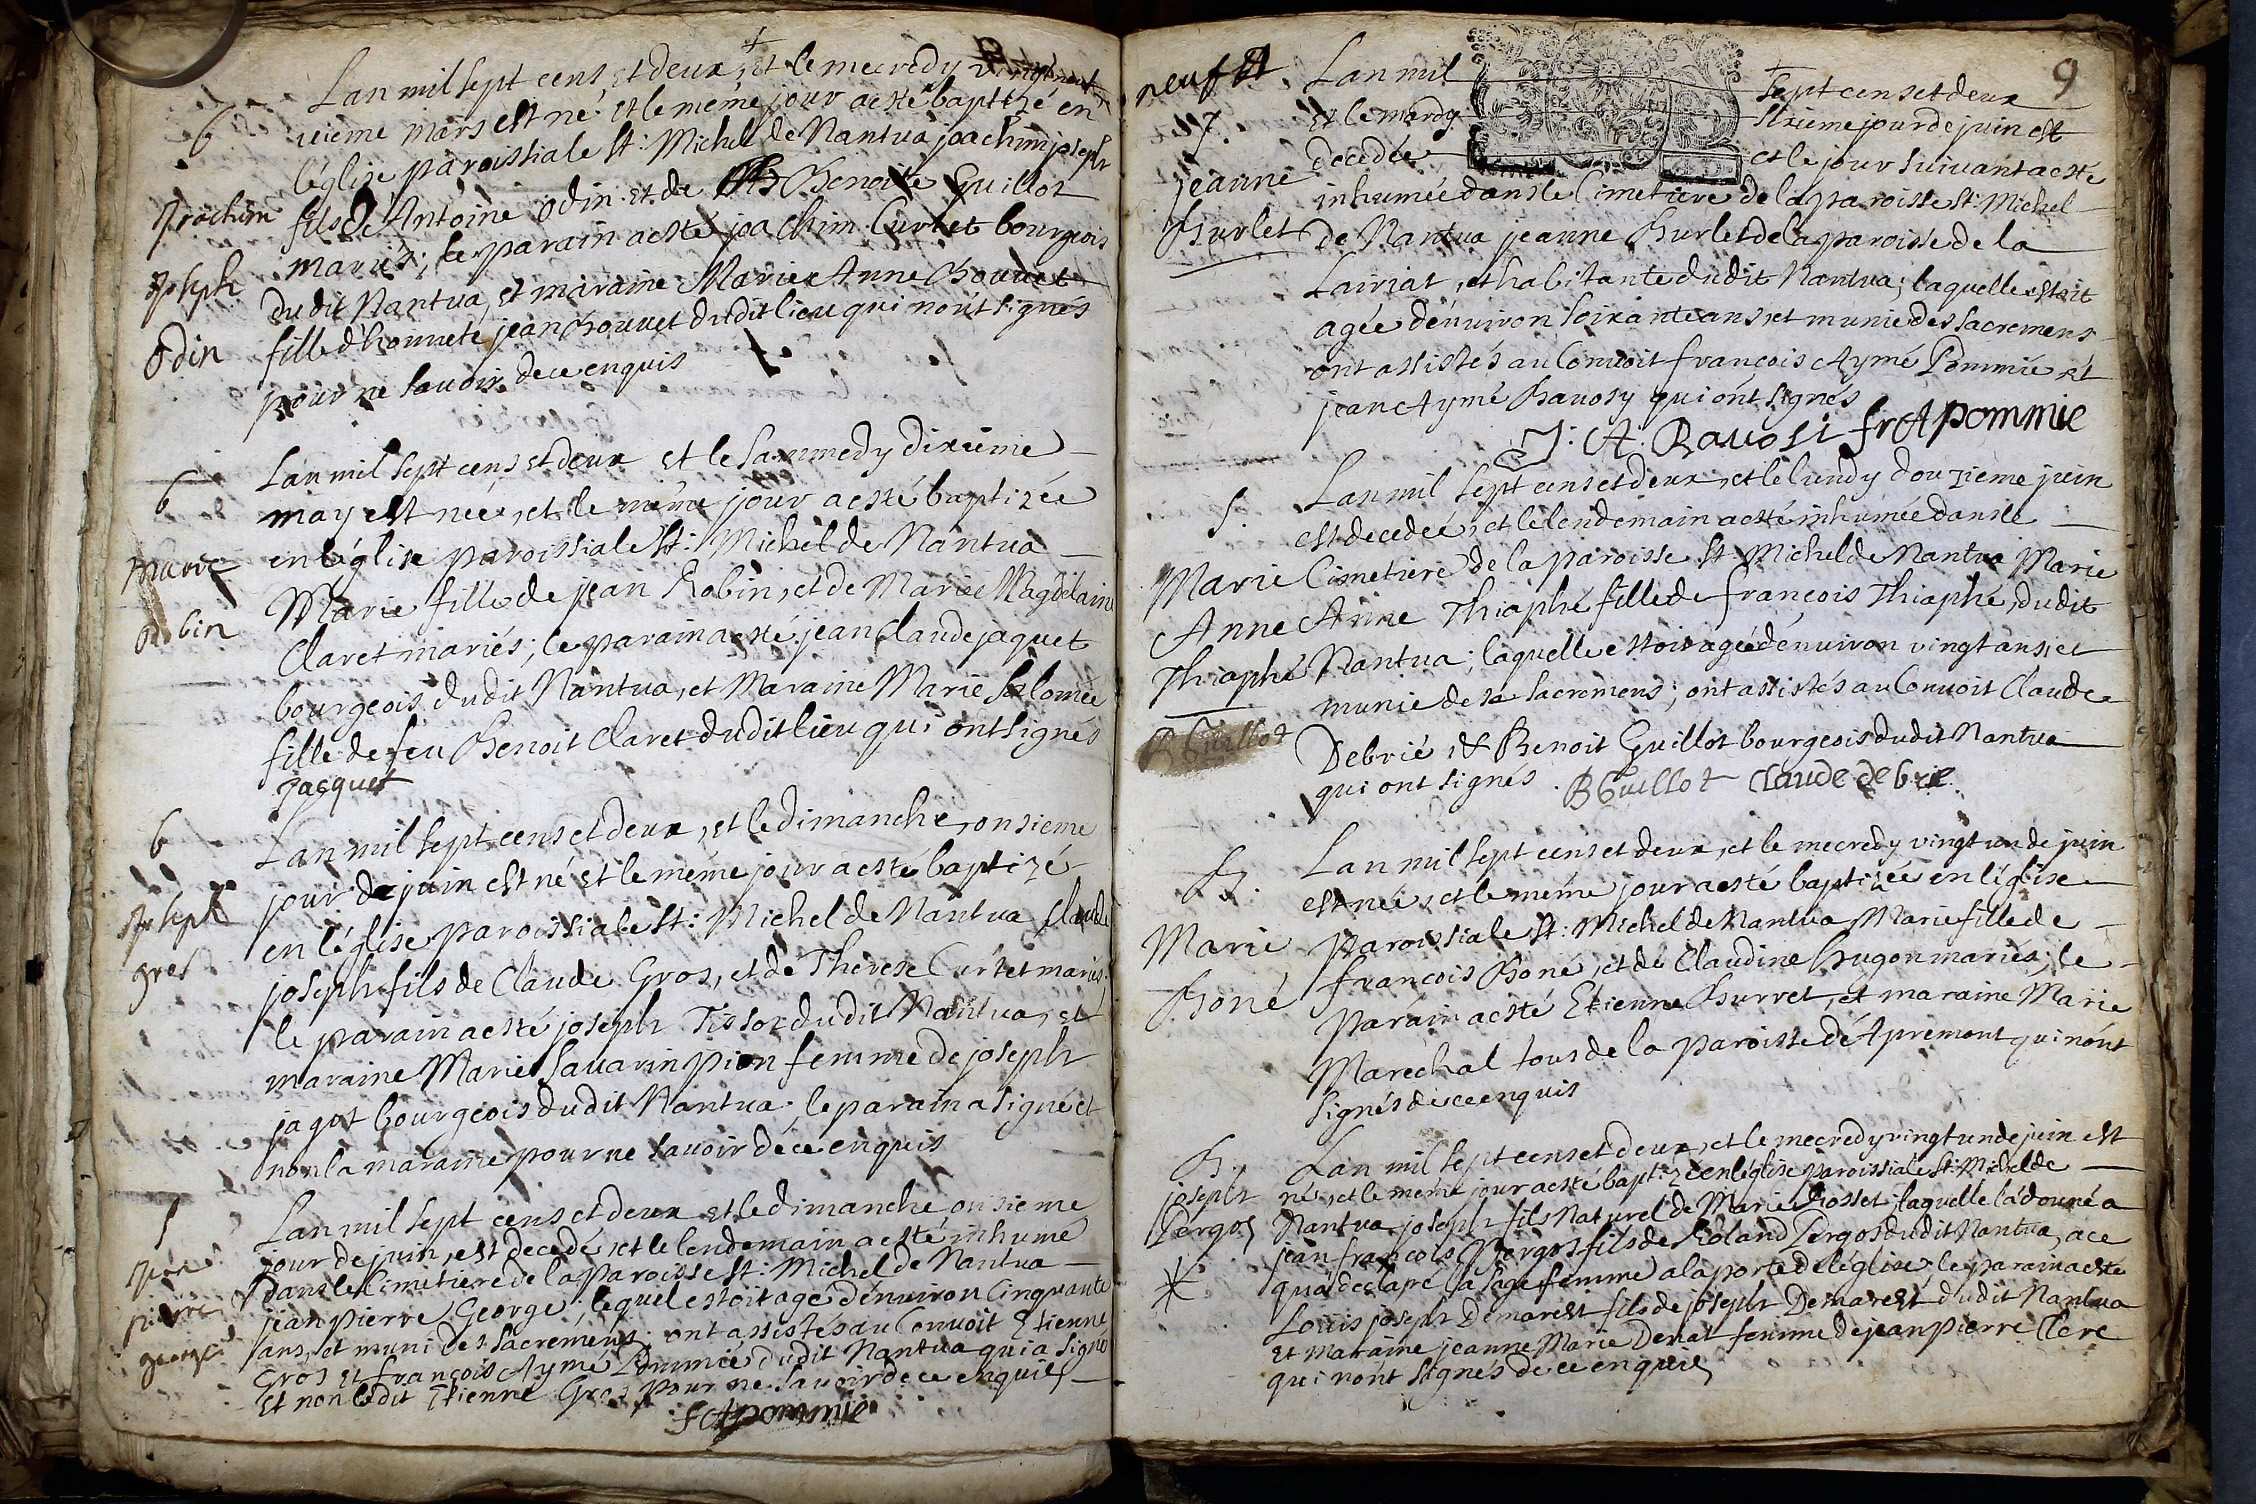 Lan mil sept cens et deux, et le mecredy vingt neuf
vieme mars est né et le méme jour a esté baptizé en
léglise paroissiale St: Michel de Nantua joachim joseph
fils d'Antoine Odin et de Benoite Guillot
mariés; le parain a esté joachim Curtet bourgeois
dudit Nantua, et maraine Marie Anne Bouuet
fille d'honnete jean Bouuet dudit lieu qui n'ont signés
pour ne sauoir de ce enquis
6
joachim
joseph
Odin
Lan mil sept cens et deux et le sammedy dixieme
may est née, et le méme jour a esté baptizée
en léglise paroissiale St: Michel de Nantua
Marie fille de jean Robin, et de Marie Magdelaine
Claret mariés; le parain a esté jean Claude jaquet
bourgeois dudit Nantua, et Maraine Marie Salomée
fille de feu Benoit Claret dudit lieu qui ont signés
Jacquet
6
Marie
Robin
Lan mil sept cens et deux, et le dimanche, onsieme
jour de juin est né et le méme jour a esté baptizé
en léglise paroissiale St: Michel de Nantua Claude
joseph fils de Claude Gros, et de Therese Curtet mariés.
le parain a esté joseph Tissot dudit Nantua, et
maraine Marie Sauarin pion femme de joseph
jagot bourgeois dudit Nantua. le parain a signé et
non la maraine pour ne sauoir de ce enquis
6
joseph
gros
Lan mil sept cens et deux et le dimanche onsieme
jour de juin, est decedé, et le lendemain a esté inhumé
dans le Cimetiere de la paroisse St: Michel de Nantua
jean pierre George; lequel estoit agé d'enuiron Cinquante
ans, et muni des sacremens. ont assistés au Conuoit Etienne
Gros et françois Aymé Pommié dudit Nantua qui a signé
et non ledit Etienne Gros pour ne sauoir de ce enquis
f A pommie
S
jean
pierre
george
neuf
9
Lan mil sept cens et deux
et le mardy sixieme jour de juin est
decedée et le jour suiuant a esté
inhumée dans le Cimetiere de la paroisse St: Michel
de Nantua jeanne Burlet de la paroisse de la
Lairiat, et habitante dudit Nantua; laquelle estoit
agée d'enuiron soixante ans, et munie des sacremens
ont assistés au Conuoit françois Aymé Pommié et
jean Aymé Bauosy qui ont signés
J: A: Bavosi fr A pommie
7.
jeanne
Burlet
Lan mil sept cens et deux, et le lundy douzieme juin
est decedée, et le lendemain a esté inhumée dans le
Cimetiere de la paroisse St: Michel de Nantua Marie
Anne Thiaphé fille de françois Thiaphé, dudit
Nantua; laquelle estoit agée d'enuiron vingt ans, et
munie de se sacremens; ont assistés au Conuoit Claude
Debrié, & Benoit Guillot bourgeois dudit Nantua
qui ont signés. B Guillot Claude debrie
S.
Marie
Anne
Thiaphé
B Guillot
Lan mil sept cens et deux, et le mecredy vingt un de juin
est née, et le méme jour a esté baptizée en léglise
paroissiale St: Michel de Nantua, Marie fille de
françois Boné, et de Claudine Hugon mariés; le
parain a esté Etienne Burret, et maraine Marie
Marechal tous de la paroisse d'Apremont qui n'ont
signés de ce enquis
B.
Marie
Boné
Lan mil sept cens et deux, et le mecredy vingt un de juin est
né, et le méme jour a esté baptizé en léglise paroissiale St: Michel de
Nantua joseph fils Naturel de Marie Rosset; laquelle la donné a
jean françois Pergos fils de Roland Pergos dudit Nantua, a ce
qu'a declaré la sage femme a la porte de léglise; le parain a esté
Louis joseph Demarest fils de joseph Demarest dudit Nantua
et maraine jeanne Marie Denat femme de jean pierre Clerc
qui n'ont signés de ce enquis
B.
joseph
Pergos